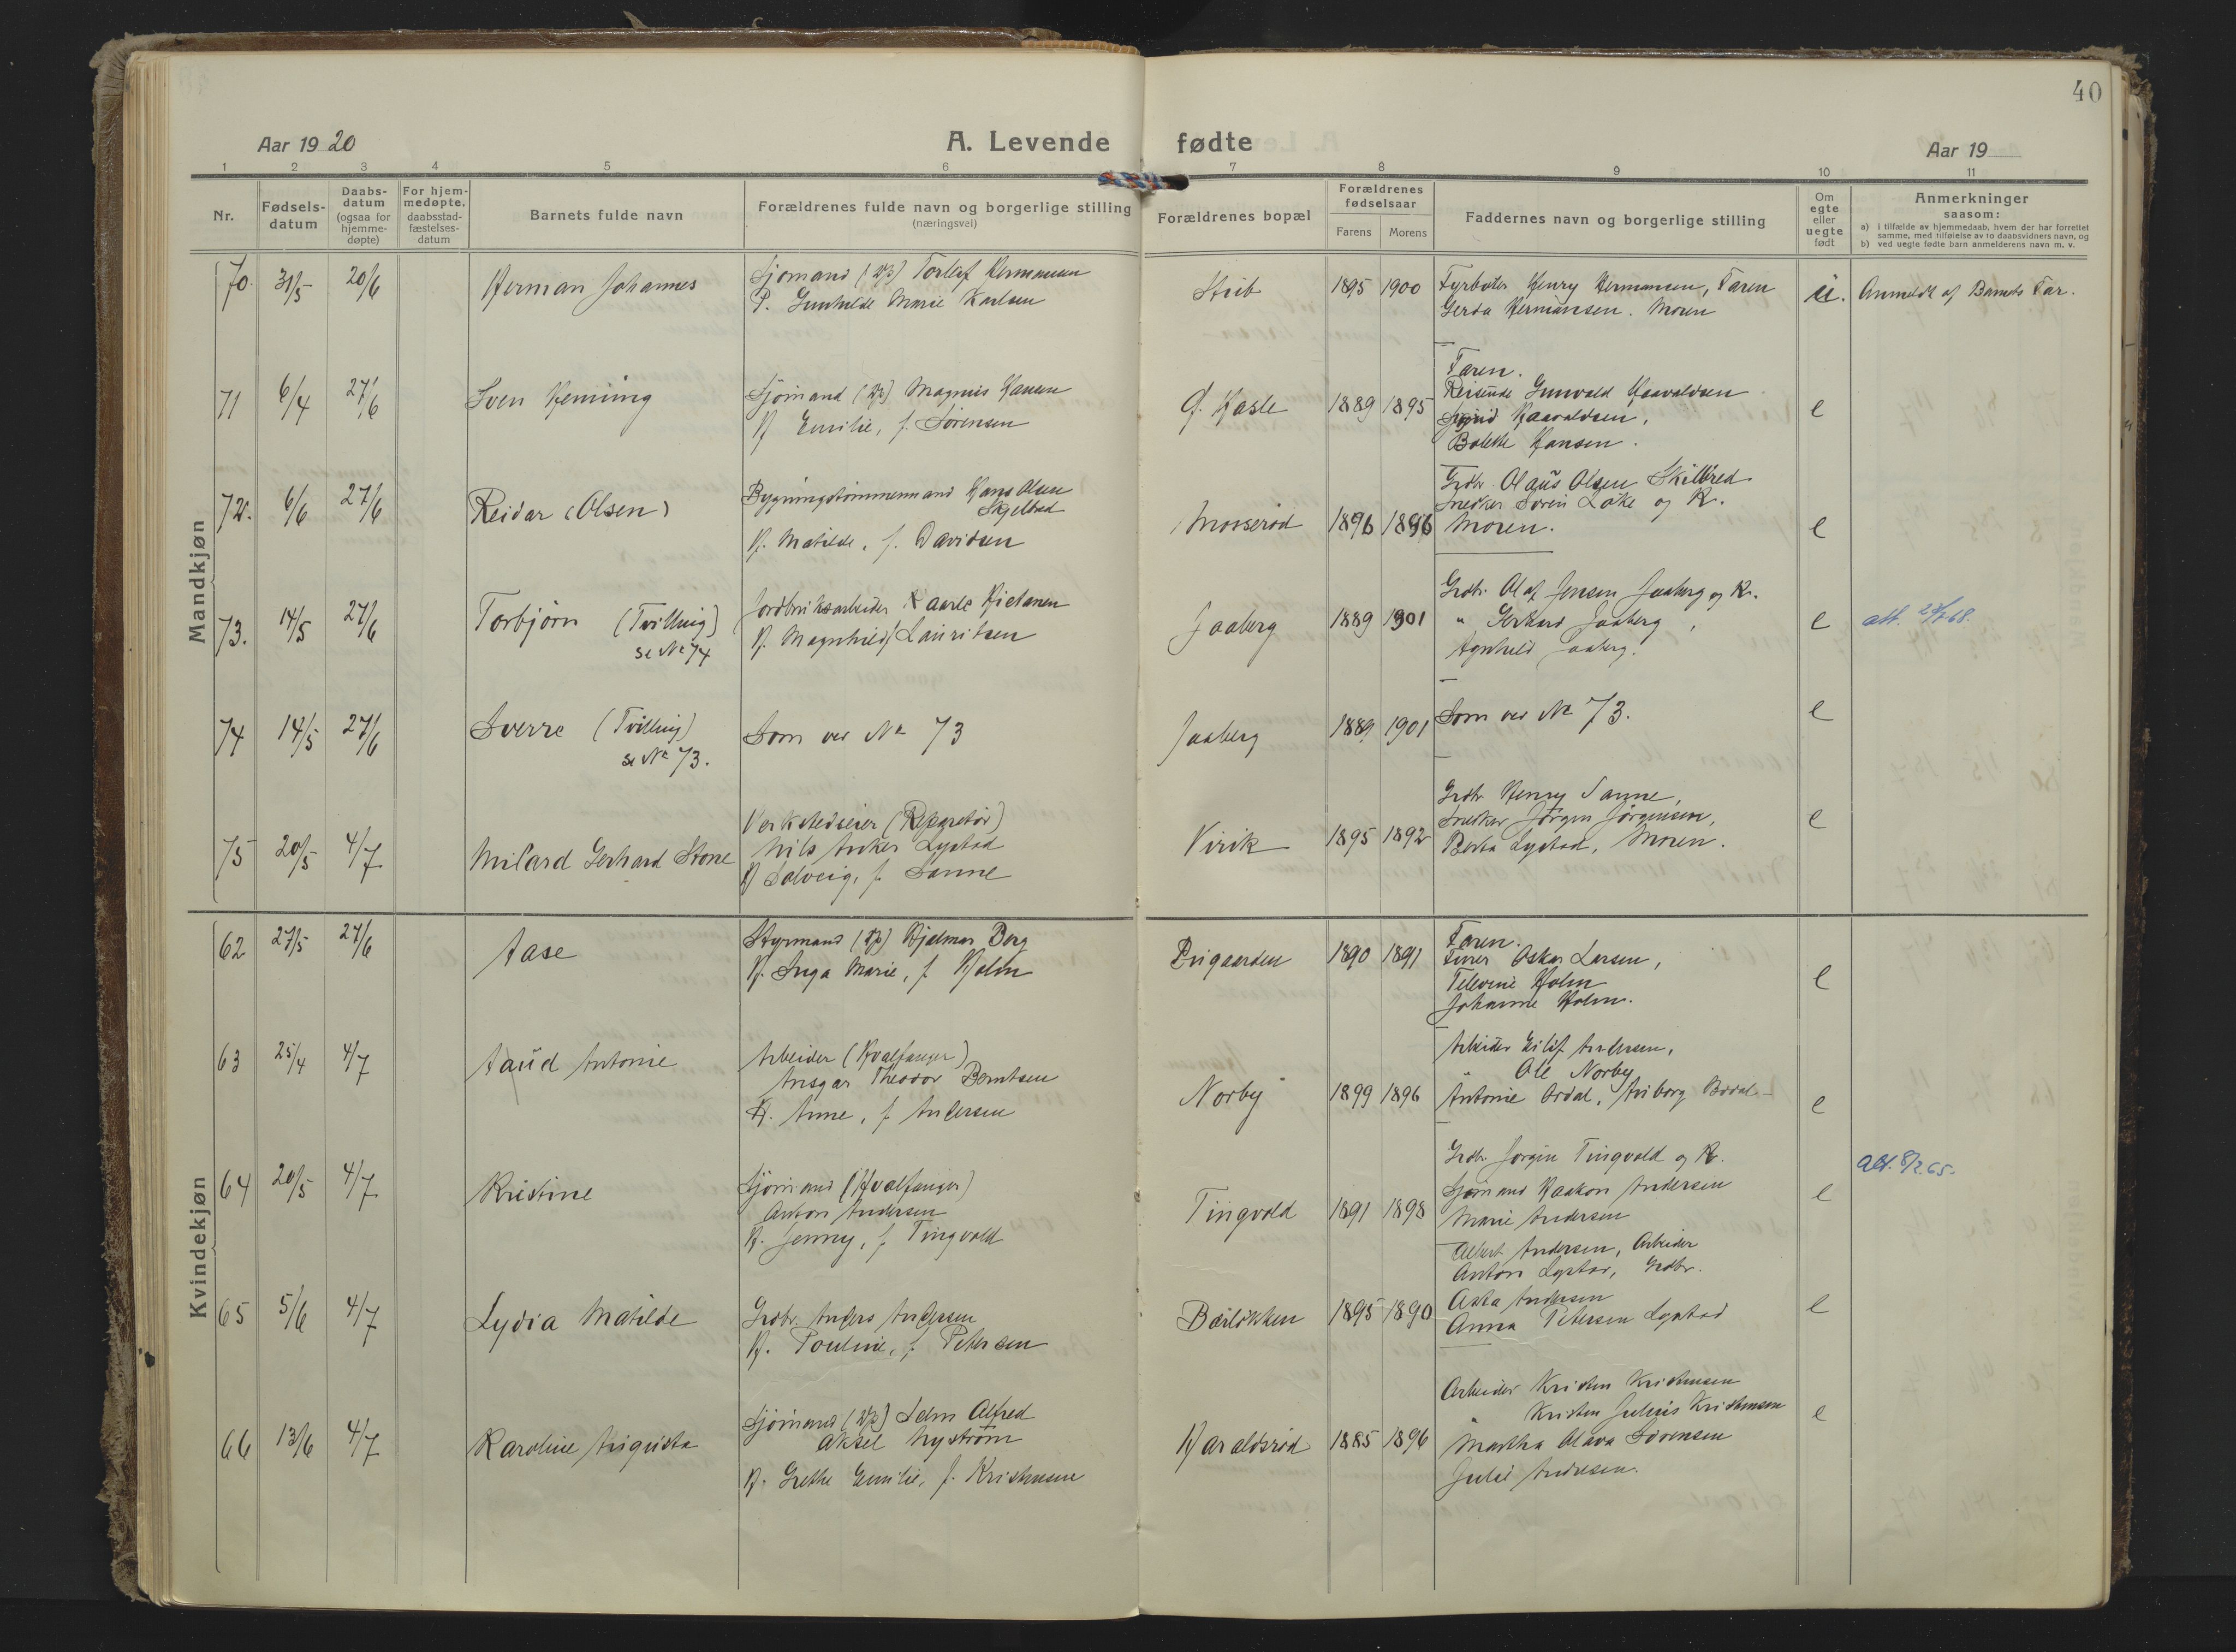 40
Aar 1920
A. Levende fødte
Aar 19
1 2 3 4 5 6 7 8 9 10 11
Nr.
Fødsels-
datum
Daabs-
datum
(ogsaa for
hjemme-
døpte)
For hjem-
medøpte,
daabsstad-
fæstelses-
datum
Barnets fulde navn
Forældrenes fulde navn og borgerlige stilling
(næringsvei)
Forældrenes bopæl
Forældrenes
fødselsaar
Farens Morens
Faddernes navn og borgerlige stilling
Om
egte
eller
uegte
født
Anmerkninger
saasom:
a) i tilfælde av hjemmedaab, hvem der har forrettet
samme, med tilføielse av to daabsvidners navn, og
b) ved uegte fødte barn anmelderens navn m. v.
Mandkjøn
70. 31/5 20/6 Herman Johannes
Sjømand Torleif Hermansen
P. Gunhilde Marie Karlsen
Stub 1895 1900
Fyrbøter Henry Hermansen, Faren
Gerda Hermansen. Moren
u. Anmeldt af Barnets Far.
71 6/4 27/6 Sven Heming
Sjømand Magnus Hansen
H Emilie, f. Sörensen
G. Hasle 1889 1895
Faren.
Reisende Gunvald Haavaldsen
Sigrid Haavaldsen,
Bolette Hansen.
e
72. 6/6 27/6 Reidar (Olsen)
Bygningstømmermand Hans Olsen
Skjelbred
H. Matilde, f. Davidsen
Mosserød 1896 1896
Grdbr. Olaus Olsen Skilbred
Snedker Soren Løke og K.
Moren.
e
73. 14/5 27/6 Torbjörn (Tvilling)
se No 74
Jordbruksarbeider Kaarle Hietanen
H. Magnhild f Lauritsen
Jaaberg 1889 1901
Grdbr. Olaf Jensen Jaaberg og K.
" Gerhard Jaaberg,
Agnhild Jaaberg.
e
74 14/5 27/6 Sverre (Tvilling)
se No 73.
Som ved No 73
Jaaberg 1889 1901
Som ved No 73.
e
75 20/5 4/7 Milard Gerhard Stone
Verkstedseier (Reparatör)
Nils Anker Lystad
H Solveig, f. Sanne
Virik 1895 1892
Grdbr. Henry Sanne,
Snedker Jörgen Jörgensen,
Berta Lystad, Moren.
e
Kvindekjøn
62 27/5 27/6 Aase
Styrmand Hjalmar Berg
H. Inga Marie, f. Holm
Prisgaarden 1890 1891
Faren.
Oskar Larsen,
Televine Holm
Johanne Holm.
e
63 25/4 4/7 Aaud Antonie
Arbeider (Hvalfanger)
Ansgar Theodor Berntsen
H. Anne, f. Andersen
Norby 1899 1896
Arbeider Eilif Andersen,
" Ole Norby
Antonie Ordal,
e
64 20/5 4/7 Kristine
Sjömand (Hvalfanger)
Anton Andersen
H. Jenny, f Tingvold
Tingvold 1891 1898
Grdbr. Jörgen Tingvold og K.
Sjömand Haakon Andersen
Marie Andersen
e att. 8/2.65.
65 5/6 4/7 Lydia Matilde
Grdbr. Anders Andersen
H. Pouline, f. Petersen
Bærlökken 1895 1890
Albert Andersen, Arbeider
Anton Lystad, Grdbr.
Asta Andersen
Anna Petersen Lystad
e
66 13/6 4/7 Karoline Augusta
Sjömand Alfred
Aksel Nyström
H. Grethe Emilie, f. Kristensen
Haraldsröd 1885 1896
Arbeider Kristen Kristensen
" Kristen Julius Kristensen
Martha Olava Sörensen
Julie Andresen.
e